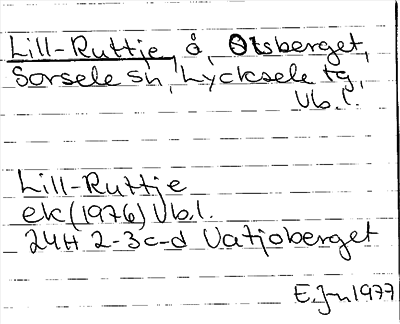 Lill-Ruttje, å, Otsberget,
Sorsele sn, Lycksele tg,
Vb.l.
Lill-Ruttje
ek (1976) Vb.l.
24H 2-3c-d Vatjoberget
E.Jn 1977